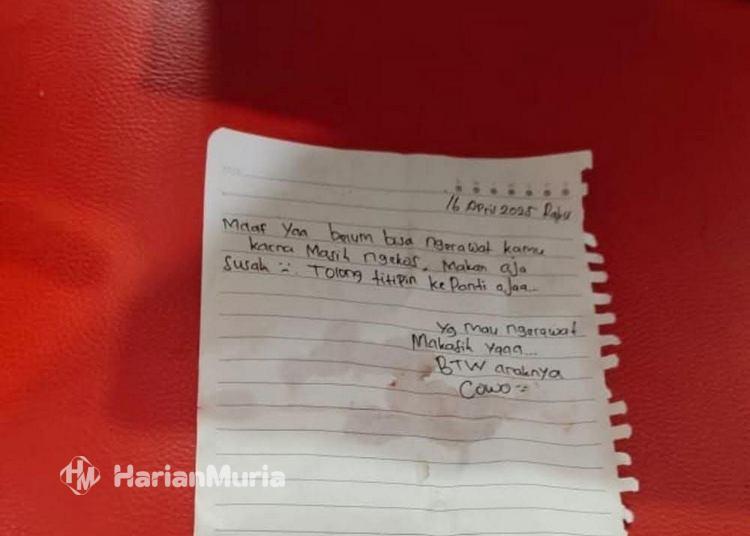 16 April 2025 Rabu
Maaf Yaa belum bisa ngerawat kamu
karna Masih ngekos. Makan aja
susah :-. Tolong titipin ke Panti ajaa...
Yg mau ngerawat
Makasih yaaa...
BTW anaknya
Cowo :-
HM HarianMuria